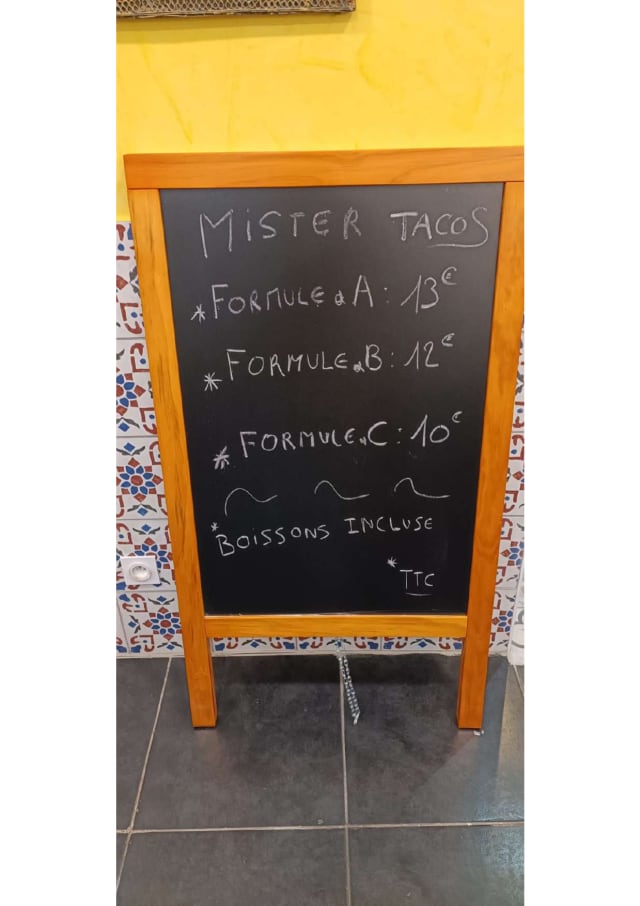 MISTER TACOS
*FORMULE.A: 13€
*FORMULE.B: 12€
*FORMULE.C: 10€
*BOISSONS INCLUSE
*TTC